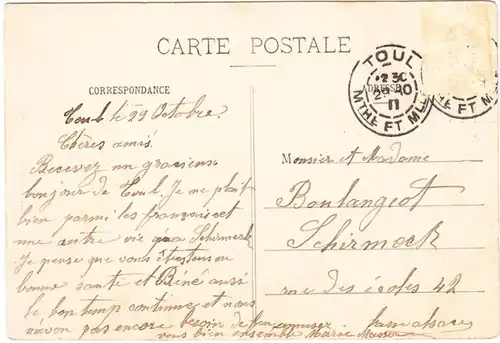 CARTE POSTALE
CORRESPONDANCE
ADRESSE
TOUL
12 30
29 10
11
MTHE ET MLLE
Toul le 29 Octobre.
Chères amis.
Recevez un gracieux
bonjour de Toul. Je me plait
bien parmi les français et
une autre vie qua Schirmeck
Je pense que vous êtes tous en
bonne santé et Béné aussi
le bon temp continue, et nous
navon pas encore besoin de bien
vous bien ensemble Marie
Monsier et Madame
Boulangeot
Schirmeck
rue des écoles 42